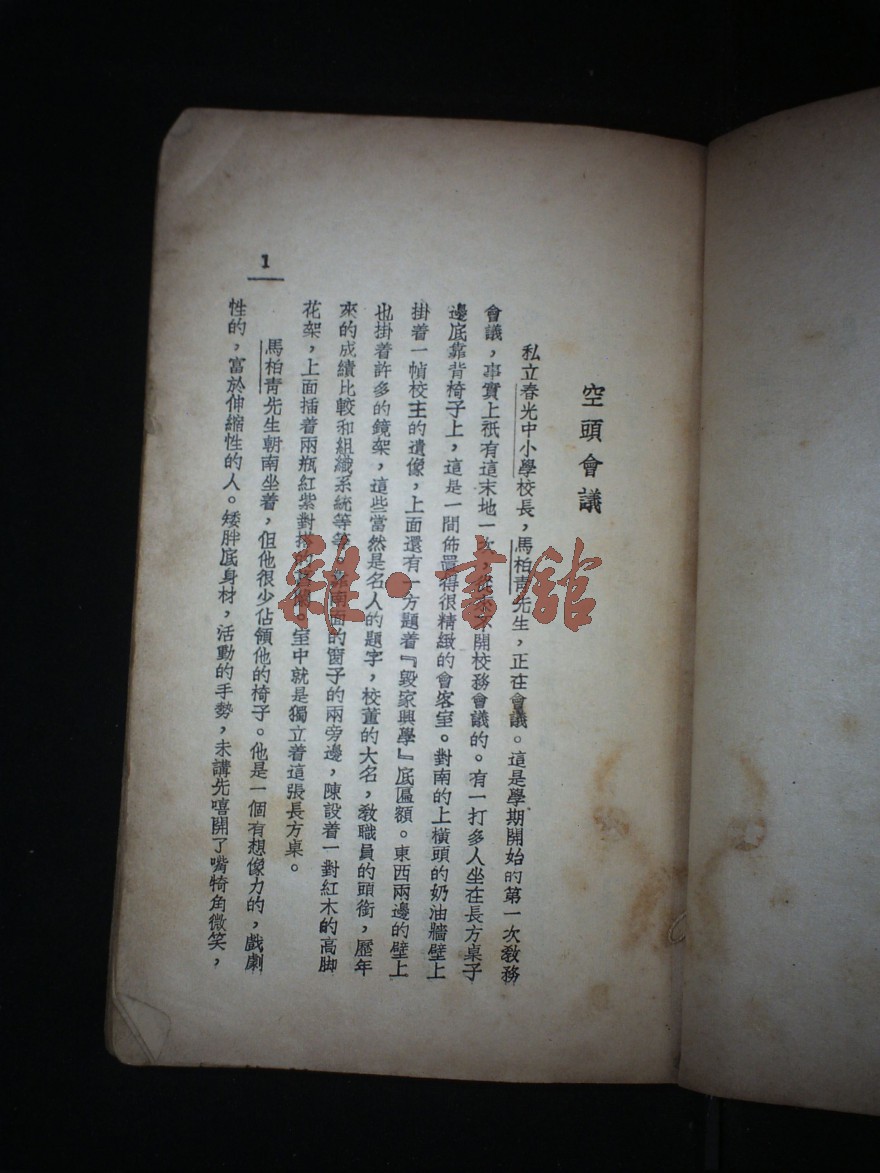 空頭會議
私立春光中小學校長，馬柏青先生，正在會議。這是學期開始的第一次教務
會議，事實上祇有這末地一次，從來不開校務會議的。有一打多人坐在長方桌子
邊底靠背椅子上，這是一間佈置得很精緻的會客室。對南的上橫頭的奶油牆壁上
掛着一幀校主的遺像，上面還有一方題着『毀家興學』底匾額。東西兩邊的壁上
也掛着許多的鏡架，這些當然是名人的題字，校董的大名，教職員的頭銜，歷年
來的成績比較和組織系統等等。南面的窗子的兩旁邊，陳設着一對紅木的高脚
花架，上面插着兩瓶紅紫對的。室中就是獨立着這張長方桌。
馬柏青先生朝南坐着，但他很少佔領他的椅子。他是一個有想像力的，戲劇
性的，富於伸縮性的人。矮胖底身材，活動的手勢，未講先嘻開了嘴犄角微笑，
1
雜·書館